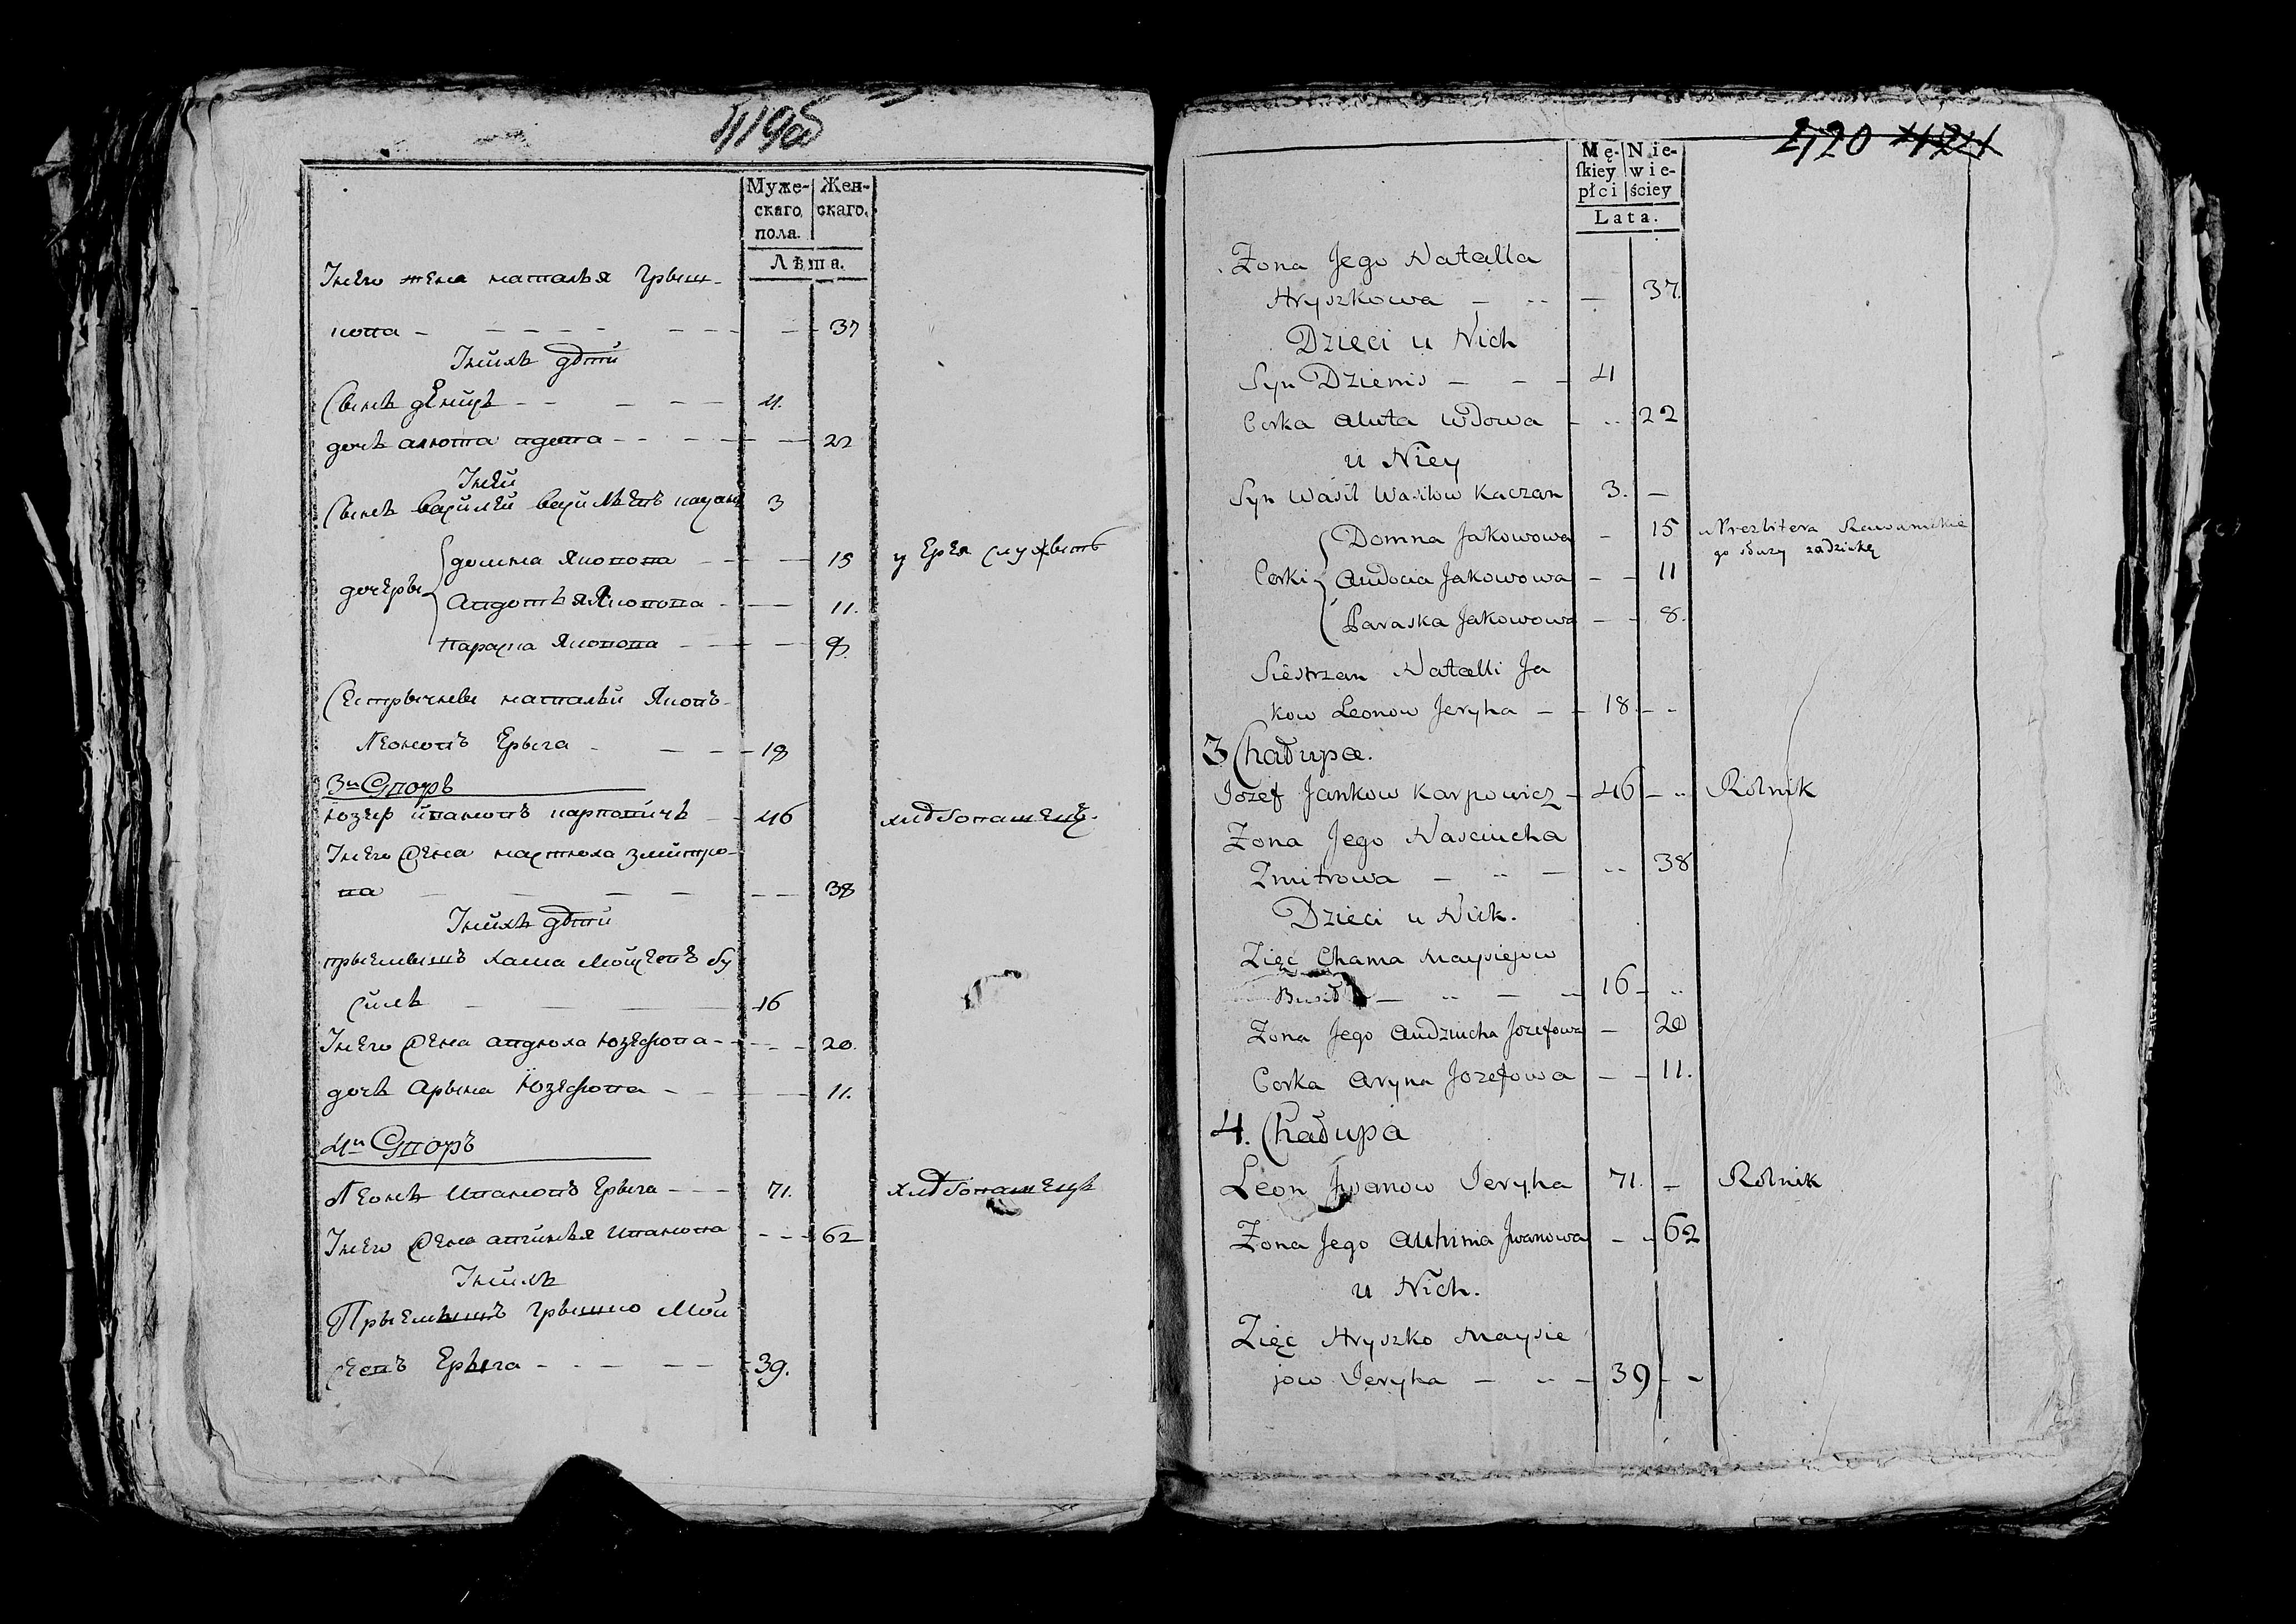 419об
Муже-
скаго
пола.
Жен-
скаго.
Лѣта.
Унего жена наталья Грыш-
кова 37
Унихъ дѣти
Сынъ дѣнисъ 4.
дочь алюта вдова 22
Уней
Сынъ Василей Василѣвъ качанъ 3
дочеры
домна Яковова 15 у Ерея служытъ
Авдотья Яковова 11.
Параска Яковова 8.
Сестрычнекъ натальи Яковъ
Леоновъ Ерыга 18
3й Дворъ
Юзефъ Ивановъ карповичъ 46 хлѣбопашецъ.
Унего жена настюха Змитро-
ва 38
Унихъ дѣти
прыемышъ хама Мойсеевъ бу
силъ 16
Унего жена авдюха Юзефова 20.
дочь Арына Юзефова 11.
4й Дворъ
Леонъ Ивановъ Ерыга 71. хлѣбопашецъ
Унего жена авгинья Иванова 62
Унихъ
Прыемышъ Грышко Мой
сеевъ Ерыга 39.
420 421
Mę-
ſkiey
płci
Nie-
wie-
ściey
Lata.
Zona Jego Natalla
Hryszkowa 37.
Dzieci u Nich
Syn Dzienis 4
Corka Aluta Wdowa 22
u Niey
Syn Wasil Wasilow Kaczan 3.
Corki
Domna Jakowowa 15 u Prezbitera
go słuzy za dziewkę
Audocia Jakowowa 11
Paraska Jakowowa 8.
Siestrzan Natalli Ja
kow Leonow Jeryha 18.
3 Chałupa.
Jozef Jankow Karpowicz 46 Rolnik
Zona Jego Nasciucha
Zmitrowa 38
Dzieci u Nich.
Zięc Chama Maysiejow
Busił 16
Zona Jego Audziucha Jozefowa 20
Corka Aryna Jozefowa 11.
4. Chałupa
Leon Jwanow Jeryha 71. Rolnik
Zona Jego Auhinia Jwanowa 62
u Nich.
Zięc Hryszko Maysie
jow Jeryha 39